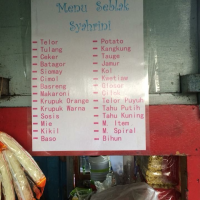 Menu Seblak
Syahrini
- Telor
- Tulang
- Ceker
- Batagor
- Siomay
- Cimol
- Goareng
- Makaroni
- Krupuk Orange
- Krupuk Warna
- Sosis
- Mie
- Kikil
- Baso
- Potato
- Kangkung
- Tauge
- Jamur
- Kol
- Kwetiau
- Cilok
- Telor Puyuh
- Tahu Putih
- Tahu Kuning
- M. Item
- M. Spiral
- Bihun